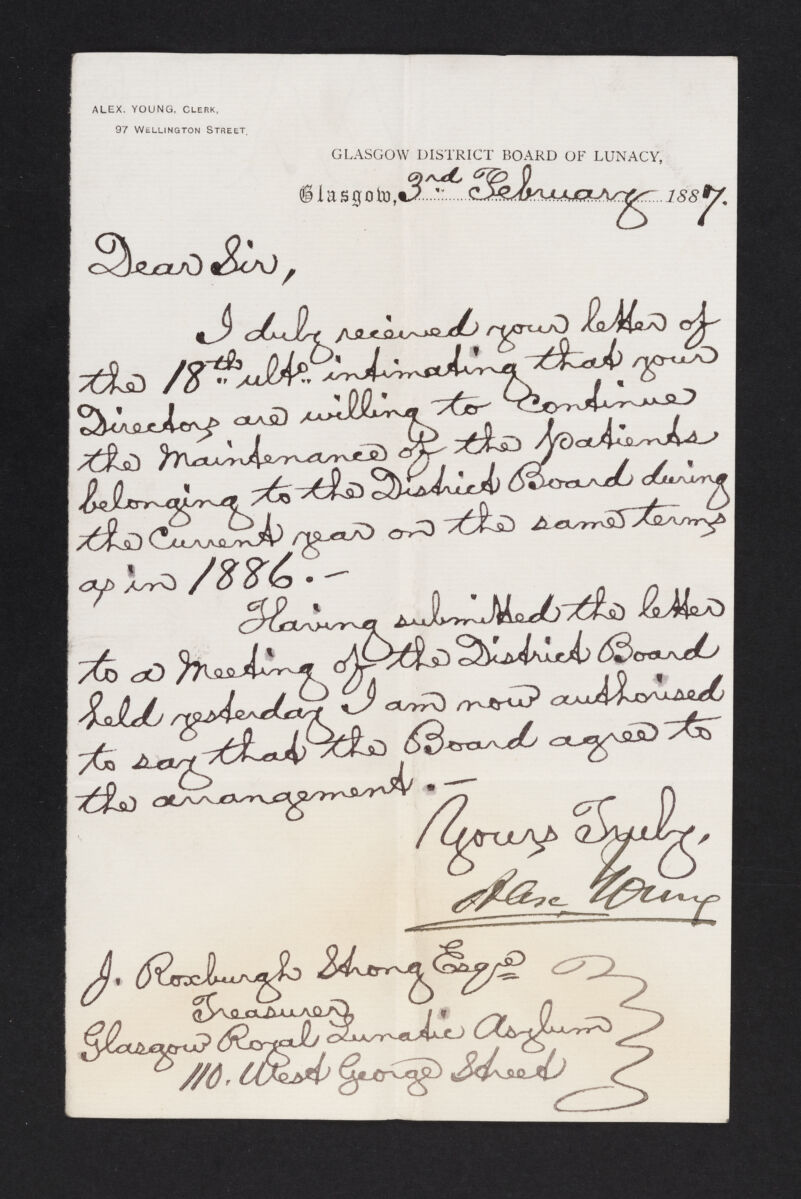 ALEX. YOUNG, CLERK,
97 WELLINGTON STREET.
GLASGOW DISTRICT BOARD OF LUNACY,
Glasgow, 3rd February 1887.
Dear Sir,
I duly received your letter of
the 18th ulto. intimating that your
Directors are willing to continue
the Maintenance of the Patients
belonging to the District Board during
the Current year on the same terms
as in 1886. –
Having submitted the letter
to a Meeting of the District Board
held yesterday I am now authorised
to say that the Board agree to
the arrangement. –
Yours Truly,
Alex. Young
J. Roxburgh Strong Esqre
Treasurer
Glasgow Royal Lunatic Asylum
110. West George Street